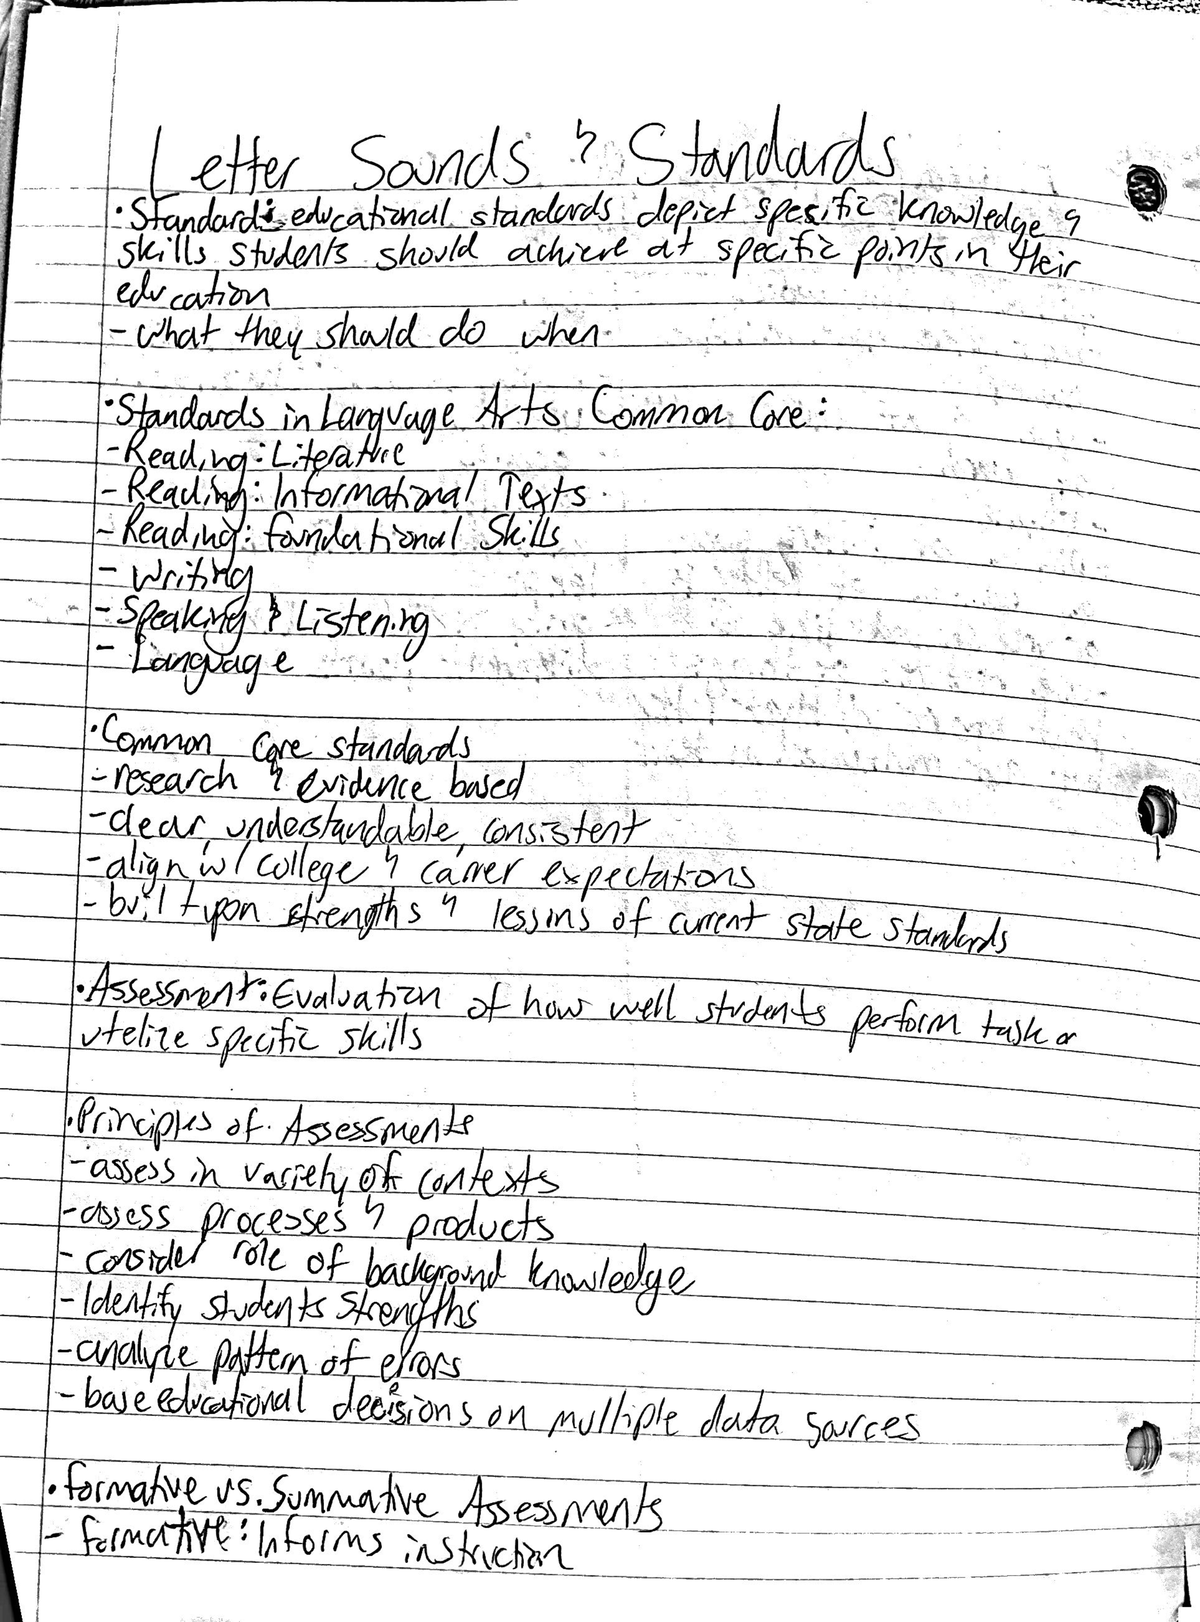 Letter Sounds & Standards
• Standard: educational standards depict spesific knowledge &
skills students should achieve at specific points in their
education
- what they should do when
• Standards in Language Arts Common Core:
- Reading: Literature
- Reading: Informational Texts
- Reading: foundational Skills
- Writing
- Speaking & Listening
- Language
• Common Core standards
- research & evidence based
- clear, understandable, consistent
- align w/ college & career expectations
- built upon strengths & lessons of current state standards
• Assessment: Evaluation of how well students perform task or
utelize specific skills
• Principles of Assessments
- assess in variety of contexts
- assess processes & products
- consider role of background knowledge
- Identify students strengths
- analyze pattern of errors
- base educational decisions on multiple data sources
• formative vs. Summative Assessments
- formative: Informs instruction